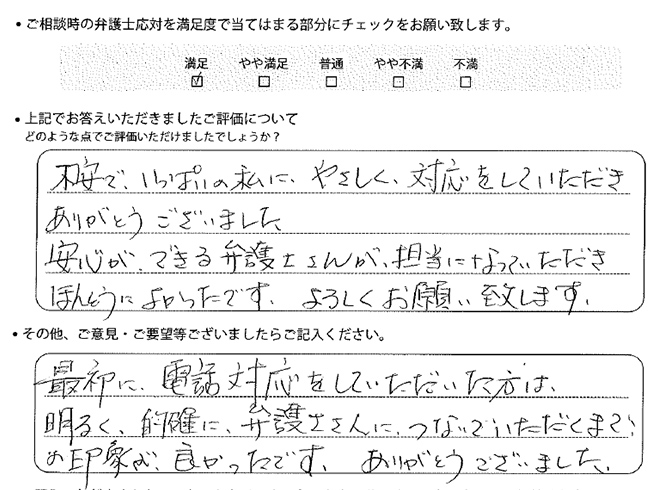 ・ご相談時の弁護士応対を満足度で当てはまる部分にチェックをお願い致します。
満足 やや満足 普通 やや不満 不満
・上記でお答えいただきましたご評価について
どのような点でご評価いただけましたでしょうか?
不安で、いっぱいの私に、やさしく、対応をしていただき
ありがとうございました
安心が、できる弁護士さんが、担当になっていただき
ほんとうによかったです、よろしくお願い致します、
・その他、ご意見・ご要望等ございましたらご記入ください。
最初に、電話対応をしていただいた方は、
明るく、的確に、弁護士さんに、つないでいただくまで、
の印象が、良かったです、ありがとうございました、